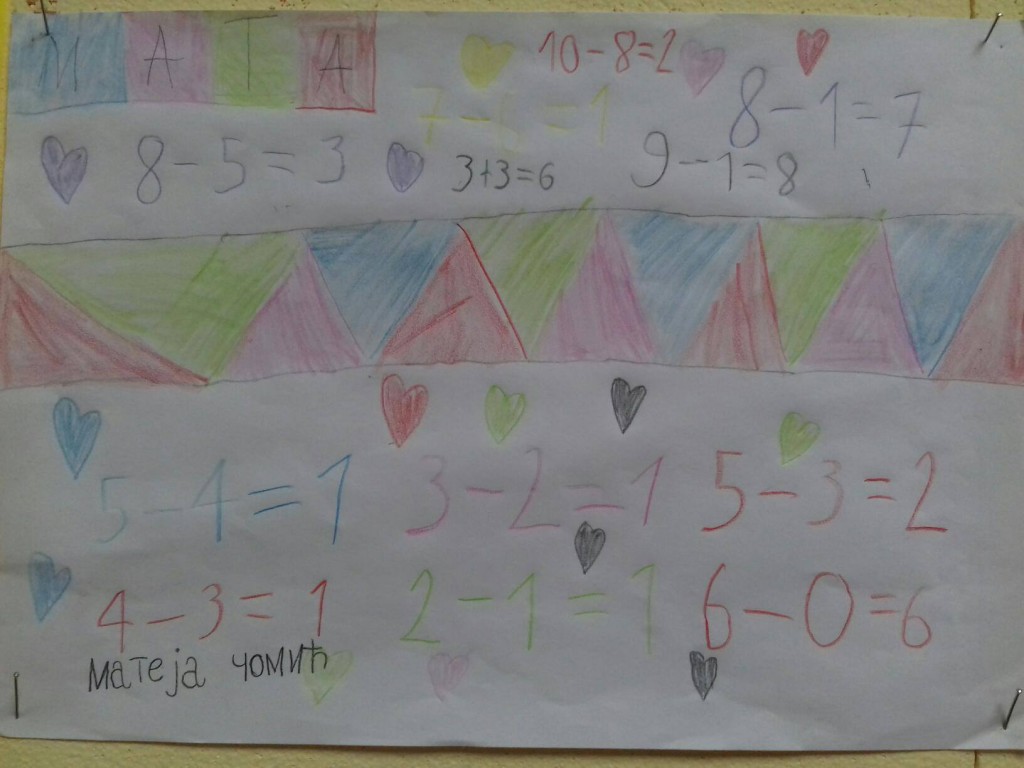 МАТА
10-8=2
7-6=1
8-1=7
8-5=3
3+3=6
9-1=8
5-4=1
3-2=1
5-3=2
4-3=1
2-1=1
6-0=6
матеја чомић